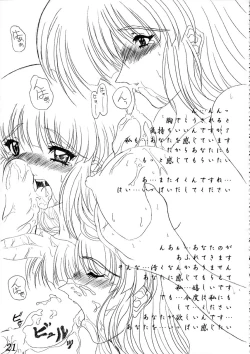 ん…んんっ
胸でこうされると
気持ちいいんですか？
私も…あなたを感じています
だからあなたにも
もっと感じてもらいたい
あ…またイくんですね…
はい…いっぱいだしてください
んあぁ…あなたのが
あふれてきます
そんな…汚くなんかありません
あなたを感じられて
私…嬉しいです
でも…今度は私にも
してください
あなたが欲しいんです
あなたを…いっぱい感じたい
ビュルッ
21